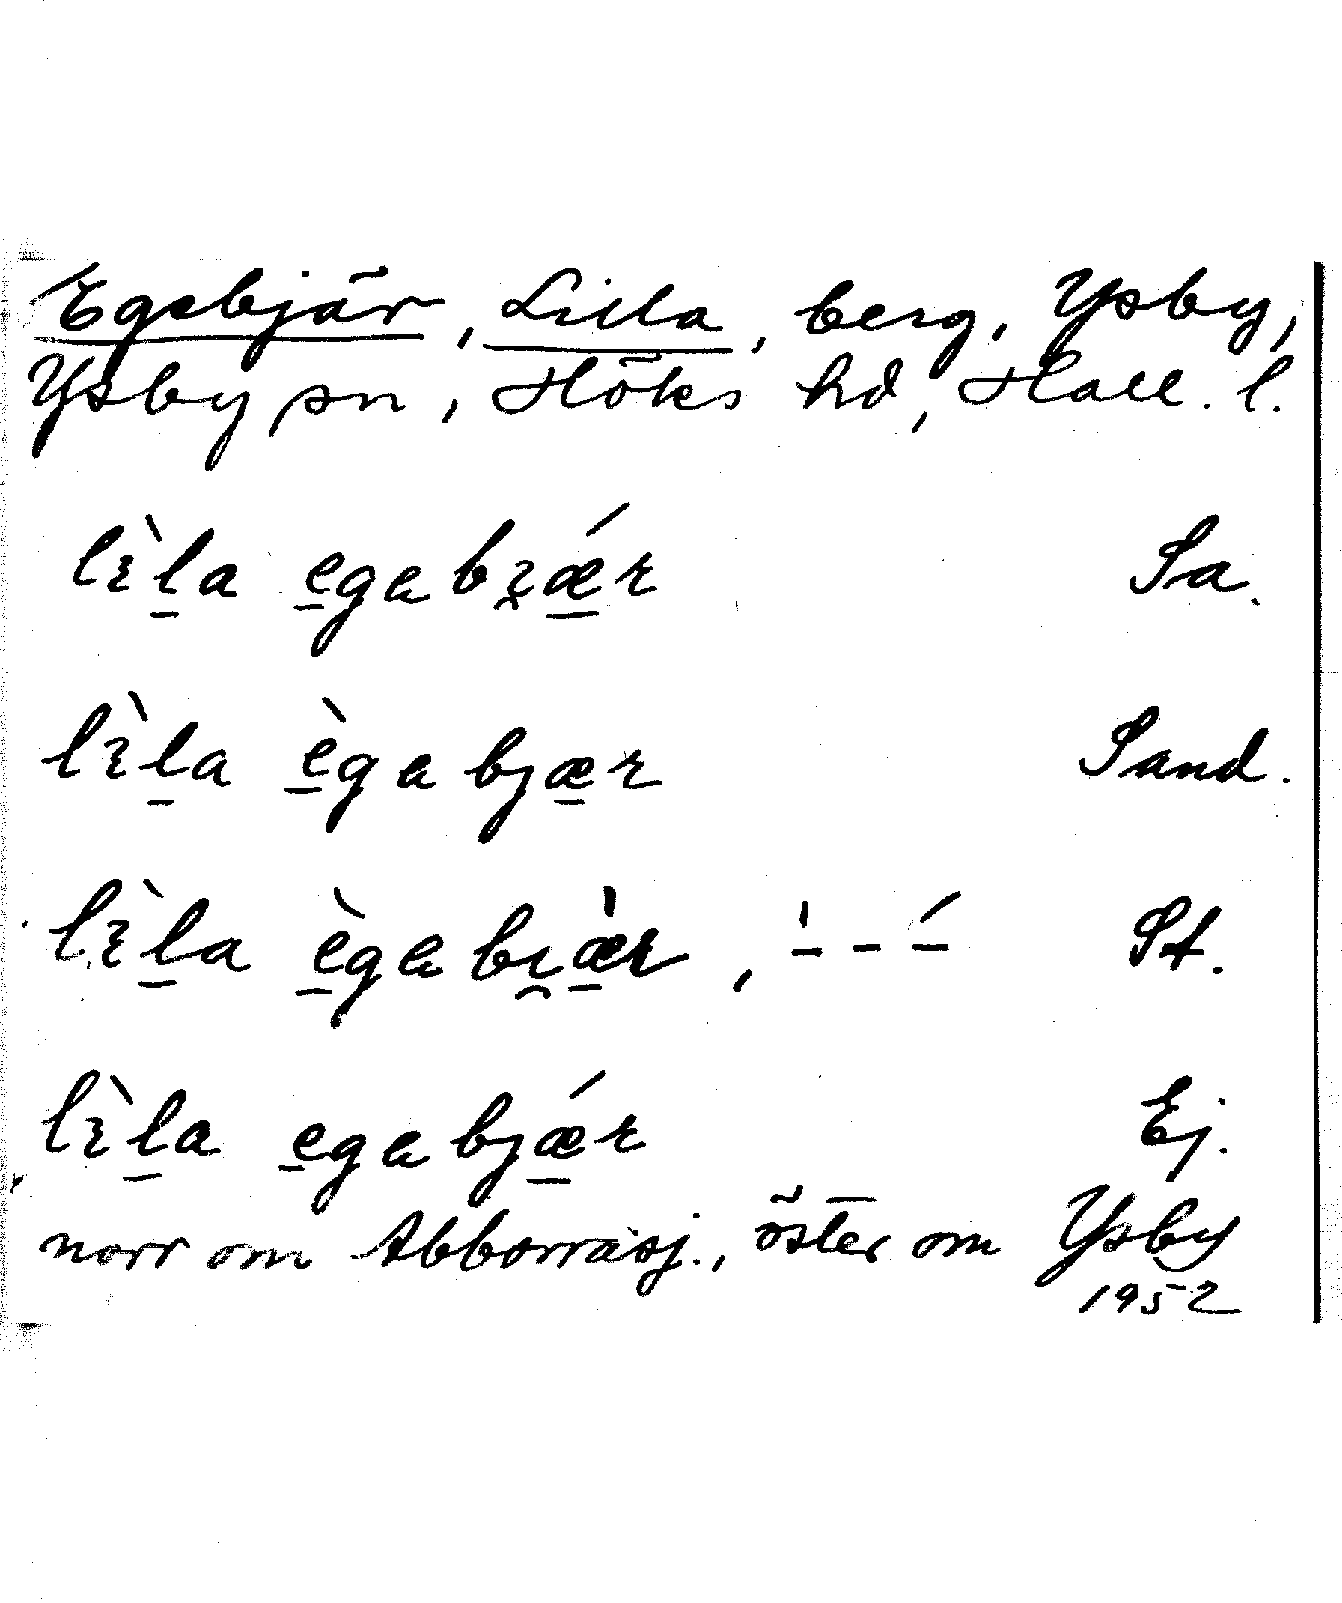 Egebjär, Lilla, berg, Ysby,
Ysby sn, Höks hd, Hall. l.
lìl̠a e̠gabi̯ǽ̠r Sa.
lìl̠a è̠gabjæ̠r Sand.
lìl̠a è̠gabi̯æ̠̀r, ˈ– – –́ St.
lìl̠a e̠gabjǽ̠r Ej.
norr om Abborrasj., öster om Ysby
1952